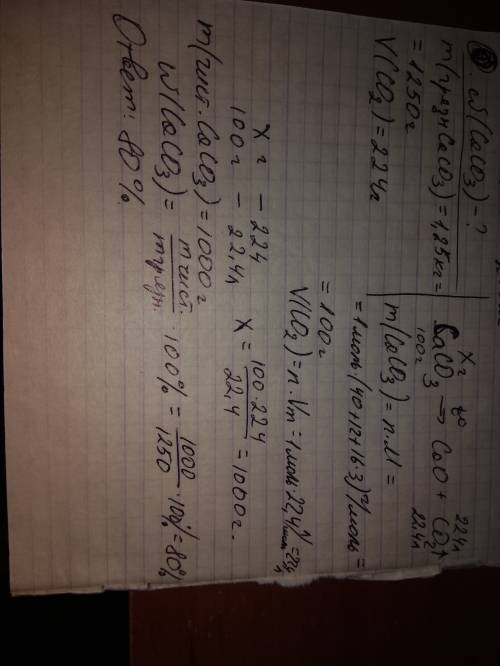 w(CaCO3) - ?
m(грязн CaCO3) = 1,25 кг =
= 1250 г
V(CO2) = 224 л
X г 224 л
CaCO3 → CaO + CO2↑
100 г 22,4 л
m(CaCO3) = n · M =
= 1 моль · (40+12+16·3) г/моль =
= 100 г
V(CO2) = n · Vm = 1 моль · 22,4 л/моль = 22,4 л
X г - 224
100 г - 22,4 л
X = 100 · 224 / 22,4 = 1000 г.
m(чист. CaCO3) = 1000 г
w(CaCO3) = m чист. / m грязн. · 100% = 1000 / 1250 · 100% = 80%
Ответ: 80%